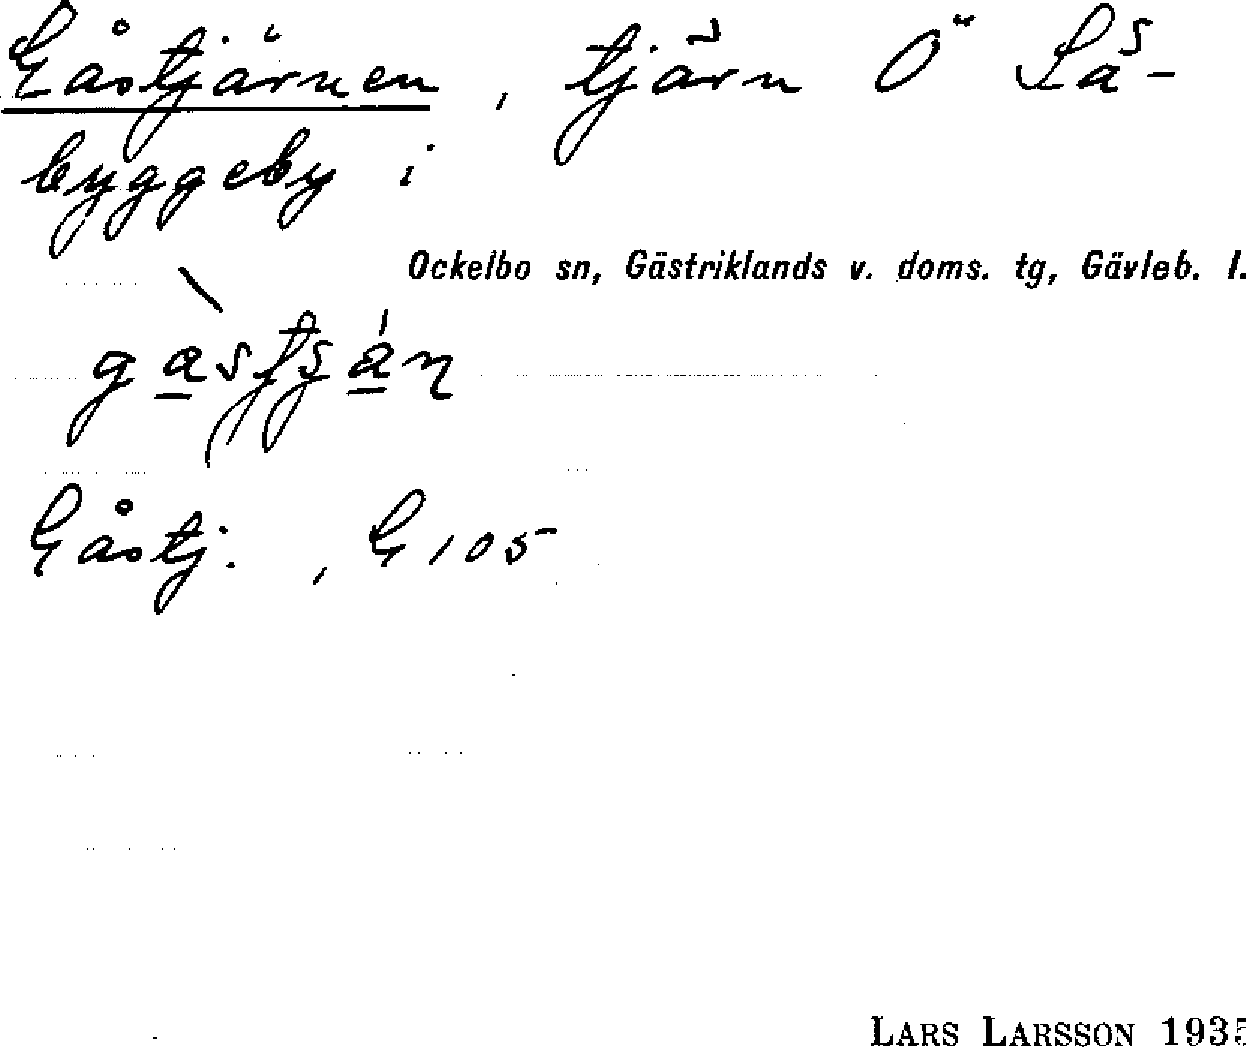 Gåstjärnen, tjärn Ö Så-
byggeby i
Ockelbo sn, Gästriklands v. doms. tg, Gävleb. l.
Gåstj., G 105
LARS LARSSON 1935